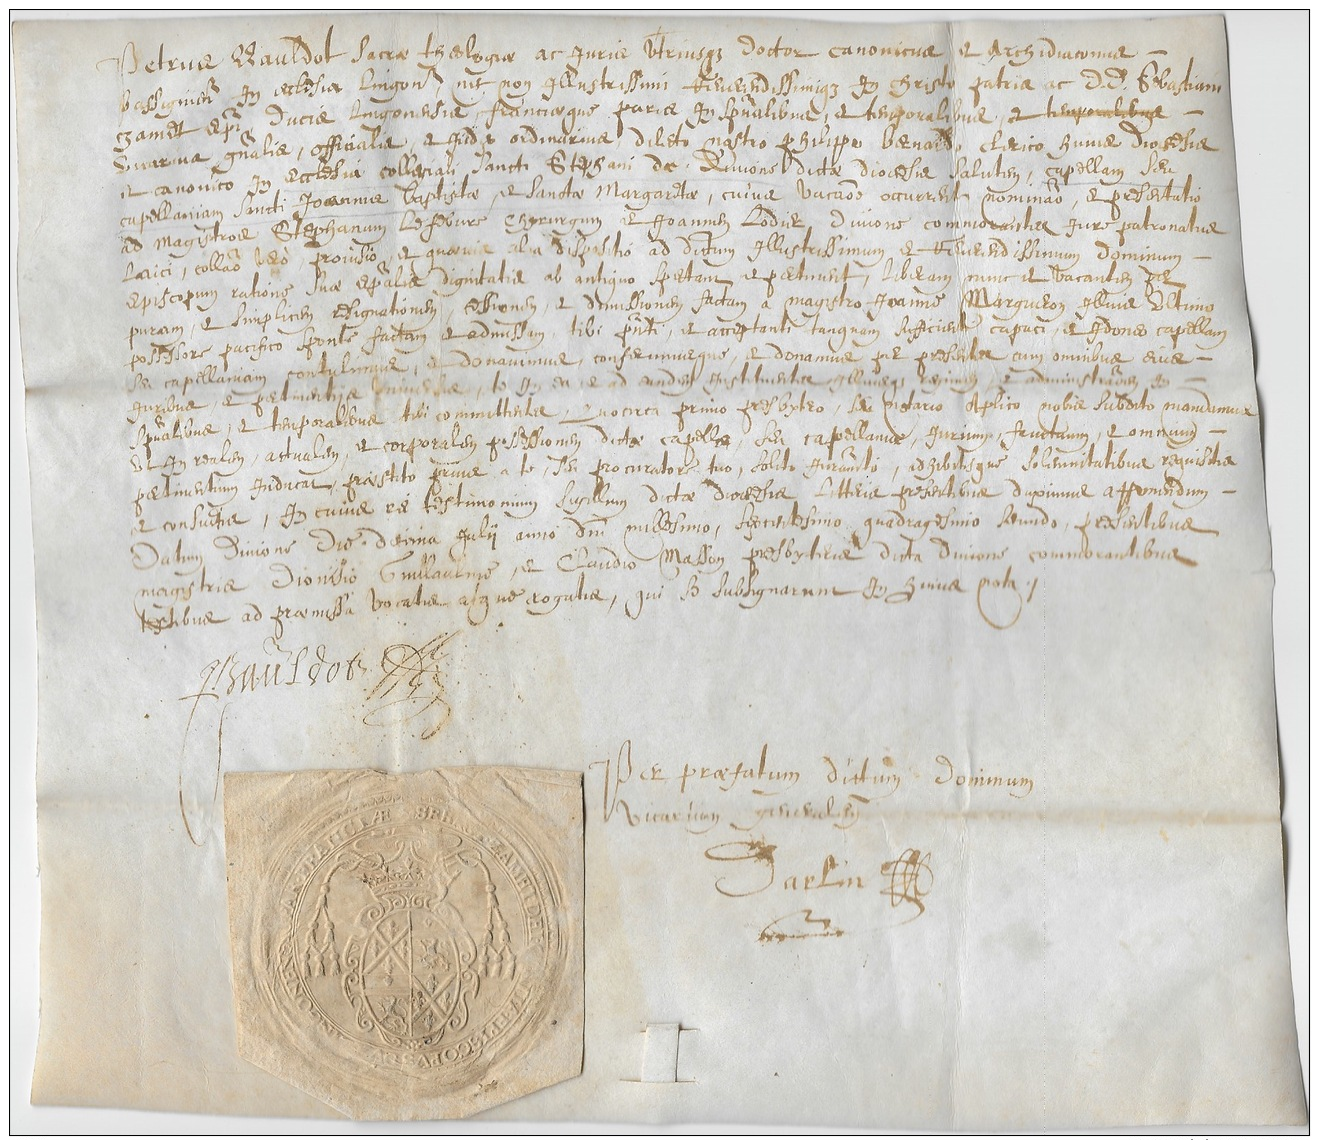 Petrus Bauldot sacræ theologiæ ac Juris Utriusq3 doctor canonicus et Archidiaconus
bassignien in ecclesia Lingon, nec non Illustrissimi Reverendissimiq3 in christo patris ac D. D. Sebastiani
Zamet epi ducis Lingonensis, franciæque paris in spualibus, et temporalibus, et temporalibus
vicarius gnalis, officialis, et Judex ordinarius, dilecto nostro philippo benard clerico huius diocesis
et canonico in ecclesia collegiali sancti Stephani de divione dictæ diocesis salutem, capellam seu
capellaniam sancti Joannis baptistæ, et sanctæ Margaretæ, cuius vacaõe occurrente nominaõ, et presentatio
ad magistros Stephanum Lefebure chyrurgum et Joannem divione commorantes Jure patronatus
Laici, collaõ vero, provisio, et quævis alia dispositio ad dictum Illustrissimum et Reverendissimum dominum
episcopum ratione suæ epalis dignitatis ab antiquo spectant, et pertinent, Liberam nunc et vacantem per
puram, et simplicem resignationem, cessionem, et dimissionem factam a magistro Joanne Margueron Illius ultimo
possessore pacifico sponte factam et admissam, tibi pnti, et acceptanti tanquam sufficienti capaci, et Idoneo capellam
seu capellaniam contulimus, et donavimus, conferimusque, et donamus per presentes cum omnibus suis
Juribus, et pertinentijs universis, te in ea ad eandem Instituentes Illiusq3 regimen, et administraõem in
spualibus, et temporalibus tibi committentes, Quocirca primo presbytero, seu notario Aplico nobis subdito mandamus
ut in realem, actualem, et corporalem possessionem dictæ capellæ, seu capellaniæ, Jurium, fructuum, et omnium
pertinentium Inducat, præstito prius a te, seu procuratore tuo, solito Juramto, adhibitisque solemnitatibus requisitis
et consuetis, In cuius rei testimonium sigillum dictæ diocesis Litteris presentibus duximus apponendum
Datum divione die decima Julij anno dni millesimo, sexcentesimo quadragesimo secundo, presentibus
magistris Dionisio Guillaulme, et Claudio Masson presbyteris dicta divione commorantibus
testibus ad præmissa vocatis atque rogatis, qui se subsignarunt in huius nota ./
PBauldot
Per præfatum dictum dominum
vicarium generalem
Jarlin
SEB ZAMET DEI
FRANCIÆ